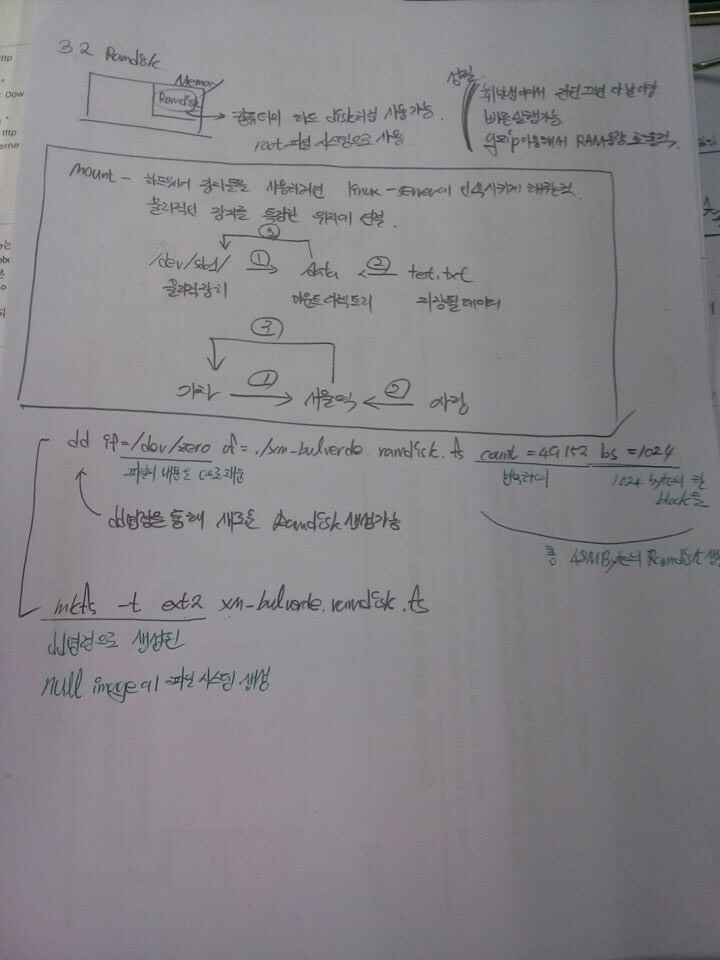 3.2 Ramdisk
Memory
Ramdisk
컴퓨터의 하드 disk처럼 사용가능.
root 파일 시스템으로 사용
성질
휘발성이어서 전원끄면 다 날아감
빠른실행가능
gzip이용해서 RAM용량 효율적.
mount - 하드웨어 장치들을 사용하려면 linux-kernel이 인식시키게 해주는것.
물리적인 장치를 특정한 위치에 연결.
③
/dev/sbd1/ ① data ② test.txt
물리적장치 마운트디렉토리 저장될데이터
③
기차 ① 서울역 ② 사람
dd if=/dev/zero of=./xm-bulverde.ramdisk.fs count=49152 bs=1024
파일의 내용을 0으로채움
1024 byte의 한
block을
dd명령을 통해 새로운 Ramdisk 생성가능
총 48MByte의 Ramdisk 생성
mkfs -t ext2 xm-bulverde.ramdisk.fs
dd명령으로 생성된
null image에 파일시스템 생성